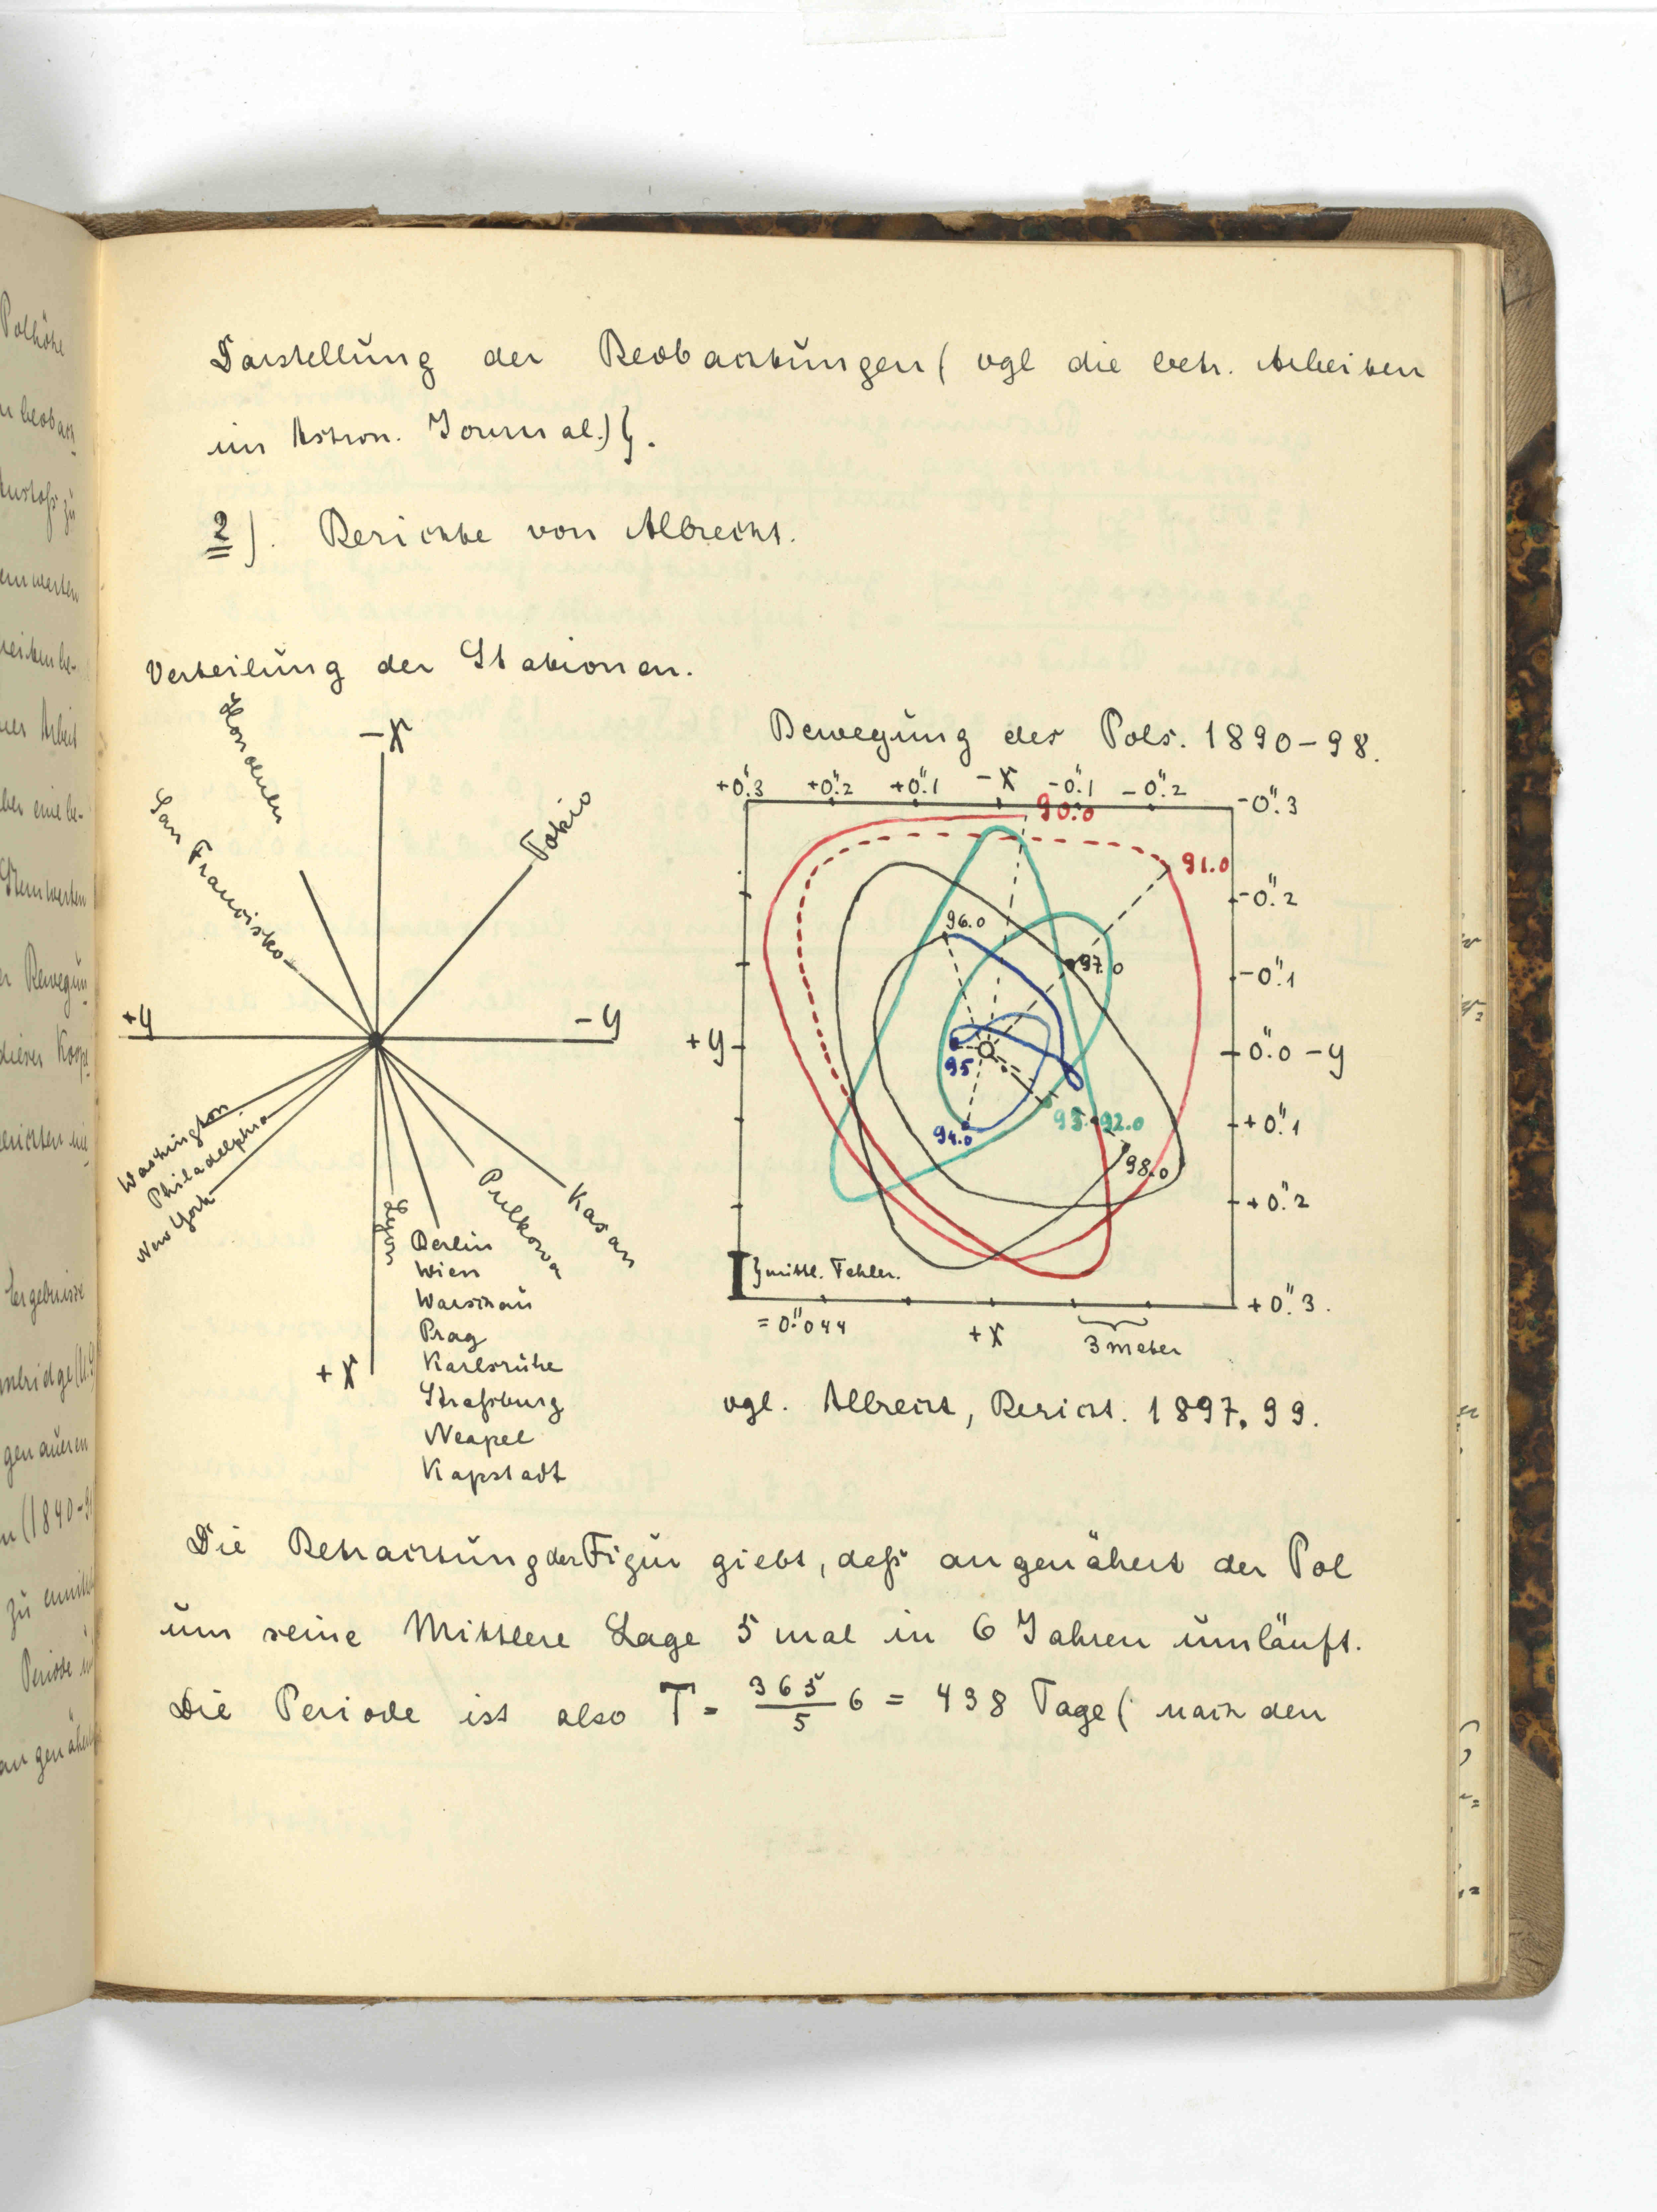 Darstellung der Beobachtungen ( vgl die betr. Arbeiten
im Astron. Journal.) }.
2). Berichte von Albrecht.
Verteilung der Stationen.
Honolulu
San Francisko
-X
Tokio
+y
-y
Washington
Philadelphia
New York
Lyon
Pulkowa
Kasan
Berlin
Wien
Warschau
Prag
Karlsruhe
Straßburg
Neapel
Kapstadt
+X
Bewegung des Pols. 1890-98.
+0".3 +0".2 +0".1 -X -0".1 -0".2 -0".3
90.0
91.0
-0".2
96.0
97.0
-0".1
+y
0".0 -y
95
93. 92.0
+0".1
94.0
98.0
+0".2
} mittl. Fehler.
+0".3.
= 0".044
+X
3 meter
vgl. Albrecht, Bericht. 1897, 99.
Die Betrachtung der Figur giebt, daß angenähert der Pol
um seine Mittlere Lage 5 mal in 6 Jahren umläuft.
Die Periode ist also T = 365/5 6 = 438 Tage ( nach den
Polhöhe
beobach
Anstoß zu
Arbeit
Ergebnisse
genaueren
(1840-
zu
Periode
angenähert